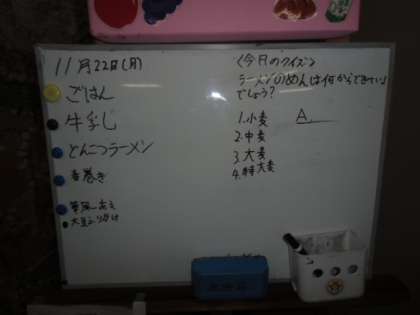 11月22日(月)
ごはん
牛乳
とんこつラーメン
春巻き
華風あえ
大豆ふりかけ
<今日のクイズ>
ラーメンのめんは何からできている
でしょう?
1.小麦
2.中麦
3.大麦
4.特大麦
A.